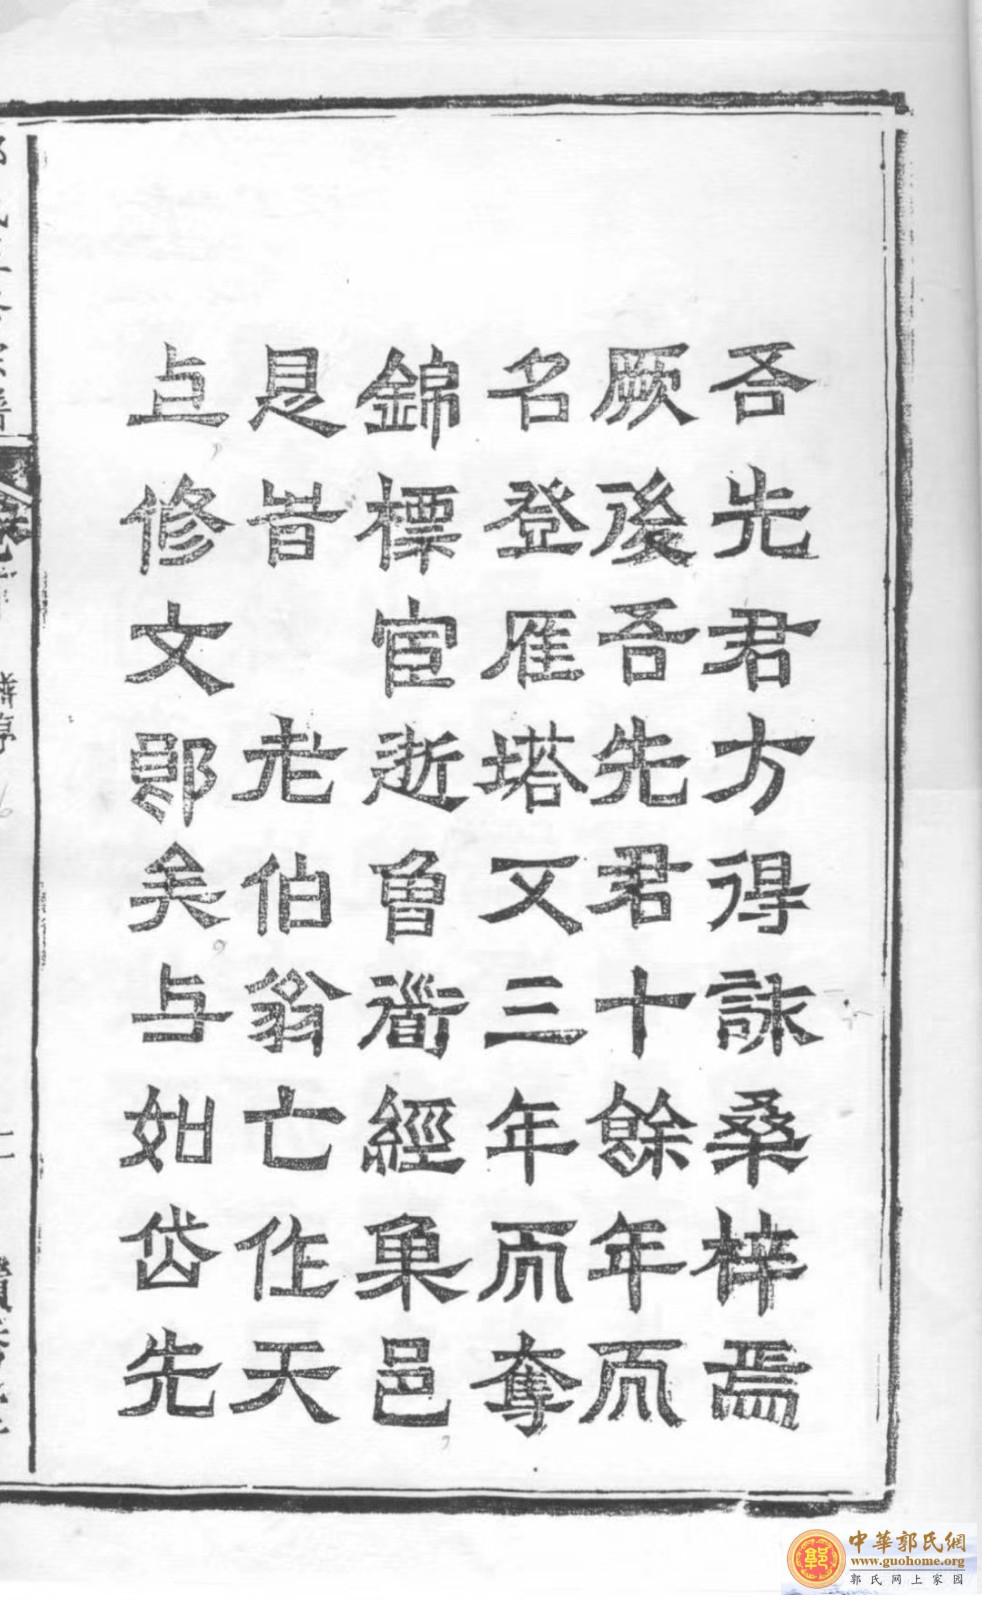 吾先君方得詠桑梓焉
厥後吾先君十餘年而
名登雁塔又三年而奪
錦標宦逝魯衟經巢邑
是昔 老伯翁亡作天
上修文郎矣与如岱先
中華郭氏網
www.guohome.org
郭氏网上家园